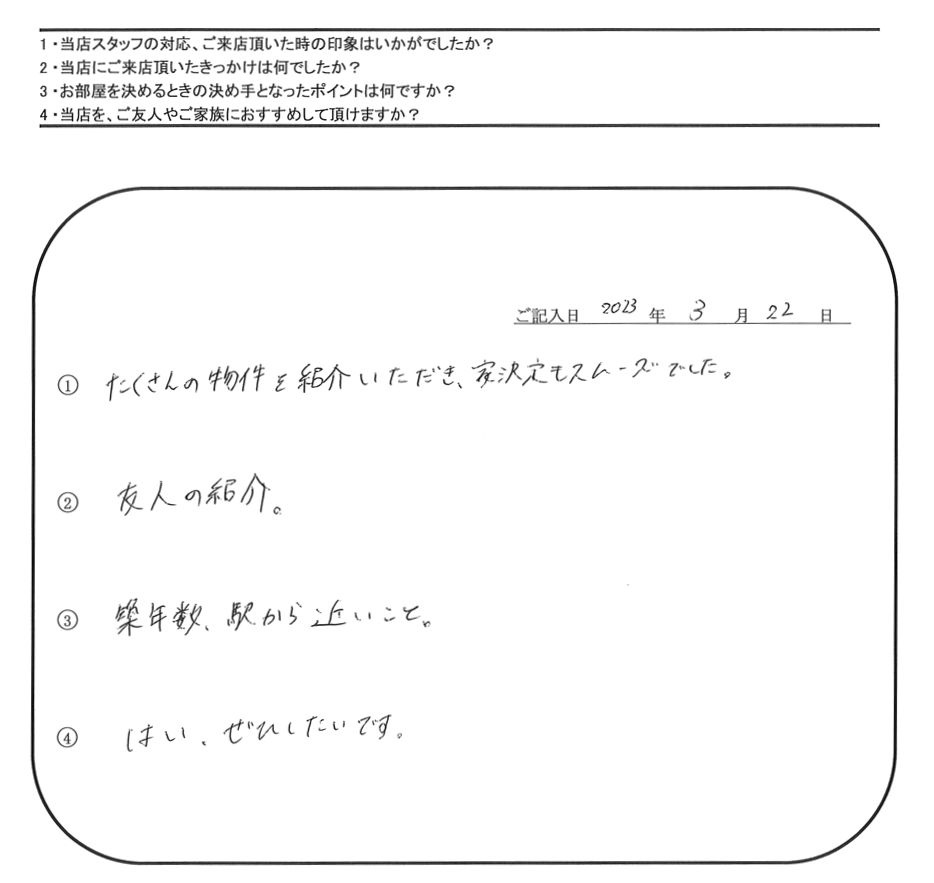 1・当店スタッフの対応、ご来店頂いた時の印象はいかがでしたか？
2・当店にご来店頂いたきっかけは何でしたか？
3・お部屋を決めるときの決め手となったポイントは何ですか？
4・当店を、ご友人やご家族におすすめして頂けますか？
ご記入日 2023 年 3 月 22 日
① たくさんの物件を紹介いただき、家決定もスムーズでした。
② 友人の紹介。
③ 築年数、駅から近いこと。
④ はい、ぜひしたいです。